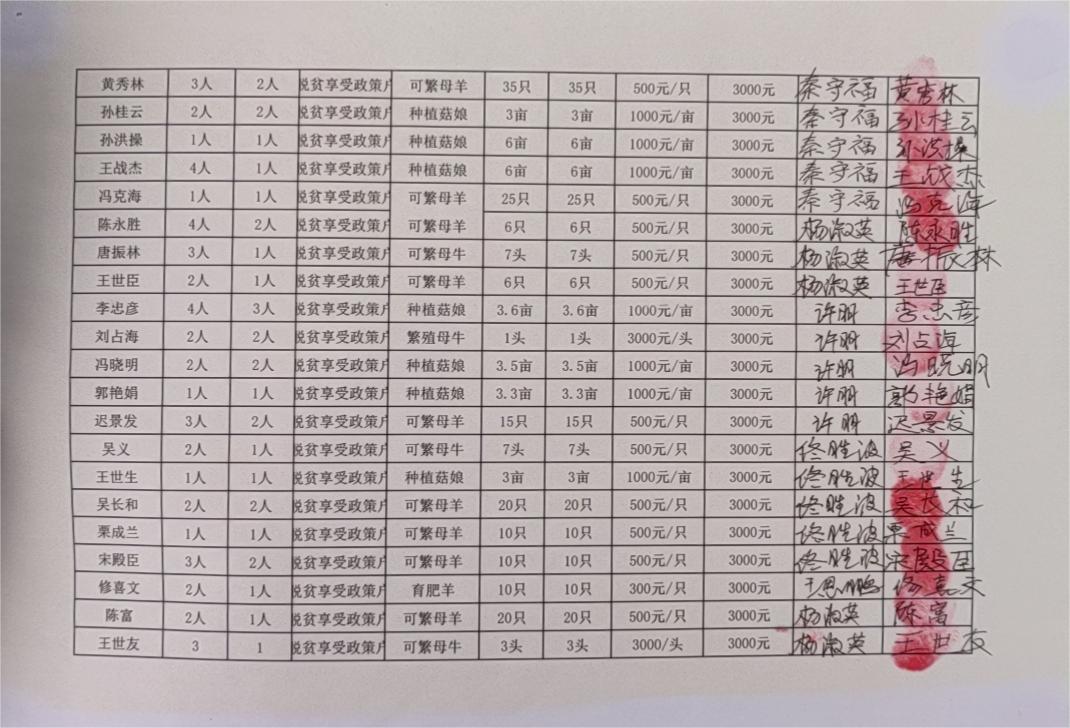 黄秀林 3人 2人 脱贫享受政策户 可繁母羊 35只 35只 500元/只 3000元 秦守福 黄秀林
孙桂云 2人 2人 脱贫享受政策户 种植菇娘 3亩 3亩 1000元/亩 3000元 秦守福 孙桂云
孙洪操 1人 1人 脱贫享受政策户 种植菇娘 6亩 6亩 1000元/亩 3000元 秦守福 孙洪操
王战杰 4人 1人 脱贫享受政策户 种植菇娘 6亩 6亩 1000元/亩 3000元 秦守福 王战杰
冯克海 1人 1人 脱贫享受政策户 可繁母羊 25只 25只 500元/只 3000元 秦守福 冯克海
陈永胜 4人 2人 脱贫享受政策户 可繁母羊 6只 6只 500元/只 3000元 杨淑英 陈永胜
唐振林 3人 1人 脱贫享受政策户 可繁母牛 7头 7头 500元/只 3000元 杨淑英 唐振林
王世臣 2人 1人 脱贫享受政策户 可繁母羊 6只 6只 500元/只 3000元 杨淑英 王世臣
李忠彦 4人 3人 脱贫享受政策户 种植菇娘 3.6亩 3.6亩 1000元/亩 3000元 许明 李忠彦
刘占海 2人 2人 脱贫享受政策户 繁殖母牛 1头 1头 3000元/头 3000元 许明 刘占海
冯晓明 2人 2人 脱贫享受政策户 种植菇娘 3.5亩 3.5亩 1000元/亩 3000元 许明 冯晓明
郭艳娟 1人 1人 脱贫享受政策户 种植菇娘 3.3亩 3.3亩 1000元/亩 3000元 许明 郭艳娟
迟景发 3人 2人 脱贫享受政策户 可繁母羊 15只 15只 500元/只 3000元 许明 迟景发
吴义 2人 1人 脱贫享受政策户 可繁母牛 7头 7头 500元/只 3000元 佟胜波 吴义
王世生 1人 1人 脱贫享受政策户 种植菇娘 3亩 3亩 1000元/亩 3000元 佟胜波 王世生
吴长和 2人 2人 脱贫享受政策户 可繁母羊 20只 20只 500元/只 3000元 佟胜波 吴长和
栗成兰 1人 1人 脱贫享受政策户 可繁母羊 10只 10只 500元/只 3000元 佟胜波 栗成兰
宋殿臣 3人 2人 脱贫享受政策户 可繁母羊 10只 10只 500元/只 3000元 佟胜波 宋殿臣
修喜文 2人 1人 脱贫享受政策户 育肥羊 10只 10只 300元/只 3000元 王恩鹏 修喜文
陈富 2人 1人 脱贫享受政策户 可繁母羊 20只 20只 500元/只 3000元 杨淑英 陈富
王世友 3 1 脱贫享受政策户 可繁母牛 3头 3头 3000/头 3000元 杨淑英 王世友